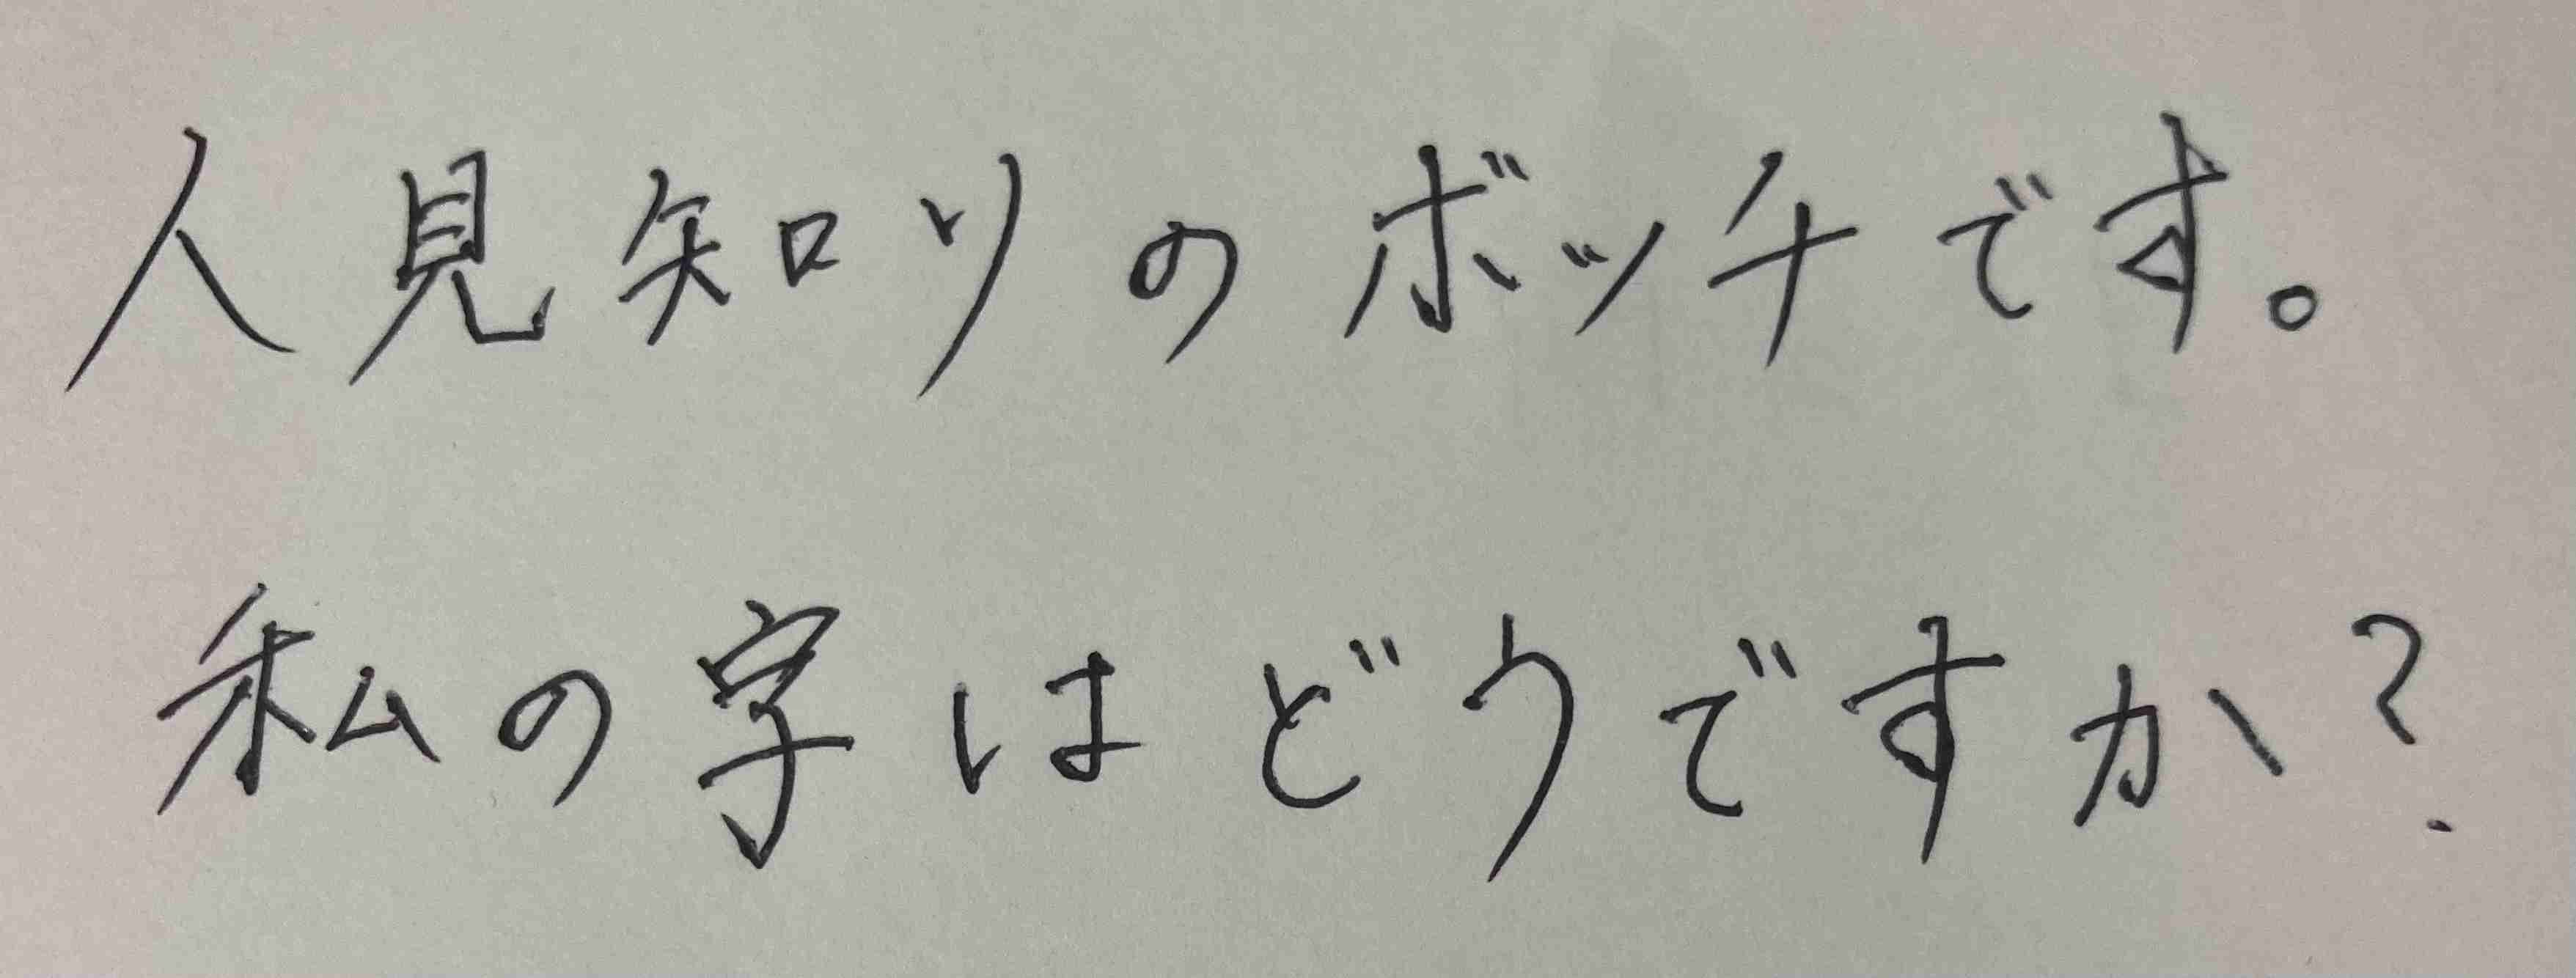 人見知りのボッチです。
私の字はどうですか?